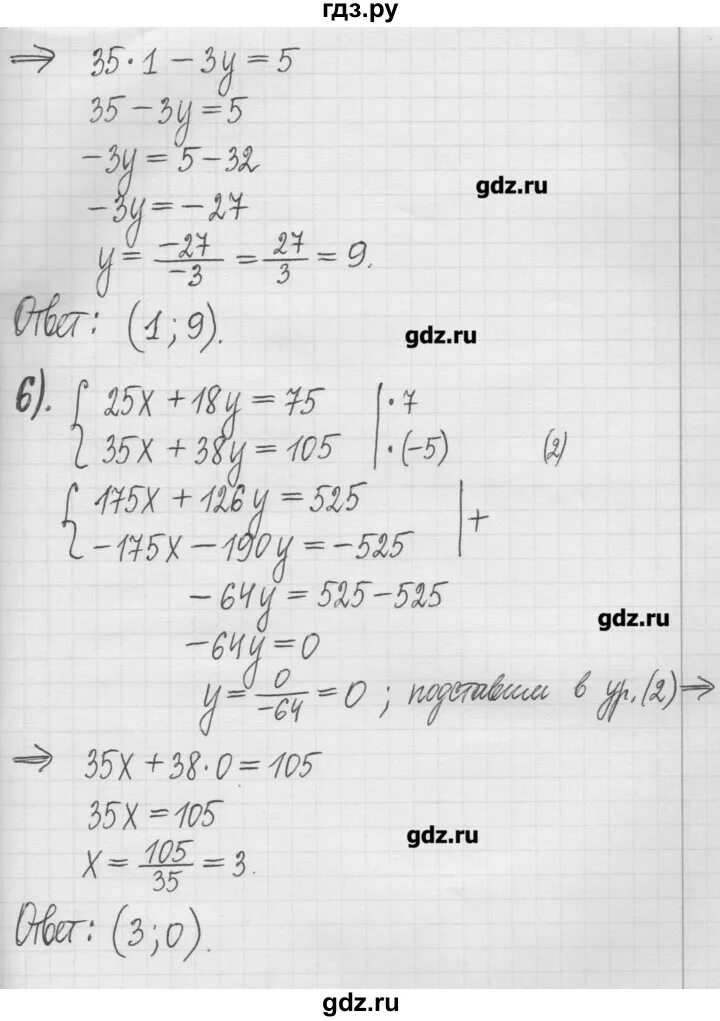 гдз.ру
⇒ 35·1 − 3y = 5
35 − 3y = 5
−3y = 5 − 32
−3y = −27
gdz.ru
y = −27/−3 = 27/3 = 9.
Ответ: (1; 9).
gdz.ru
б). { 25x + 18y = 75 | ·7
35x + 38y = 105 | ·(−5) (2)
{ 175x + 126y = 525 | +
−175x − 190y = −525
−64y = 525 − 525
gdz.ru
−64y = 0
y = 0/−64 = 0 ; подставим в ур. (2) ⇒
⇒ 35x + 38·0 = 105
35x = 105
gdz.ru
x = 105/35 = 3.
Ответ: (3; 0).
gdz.ru